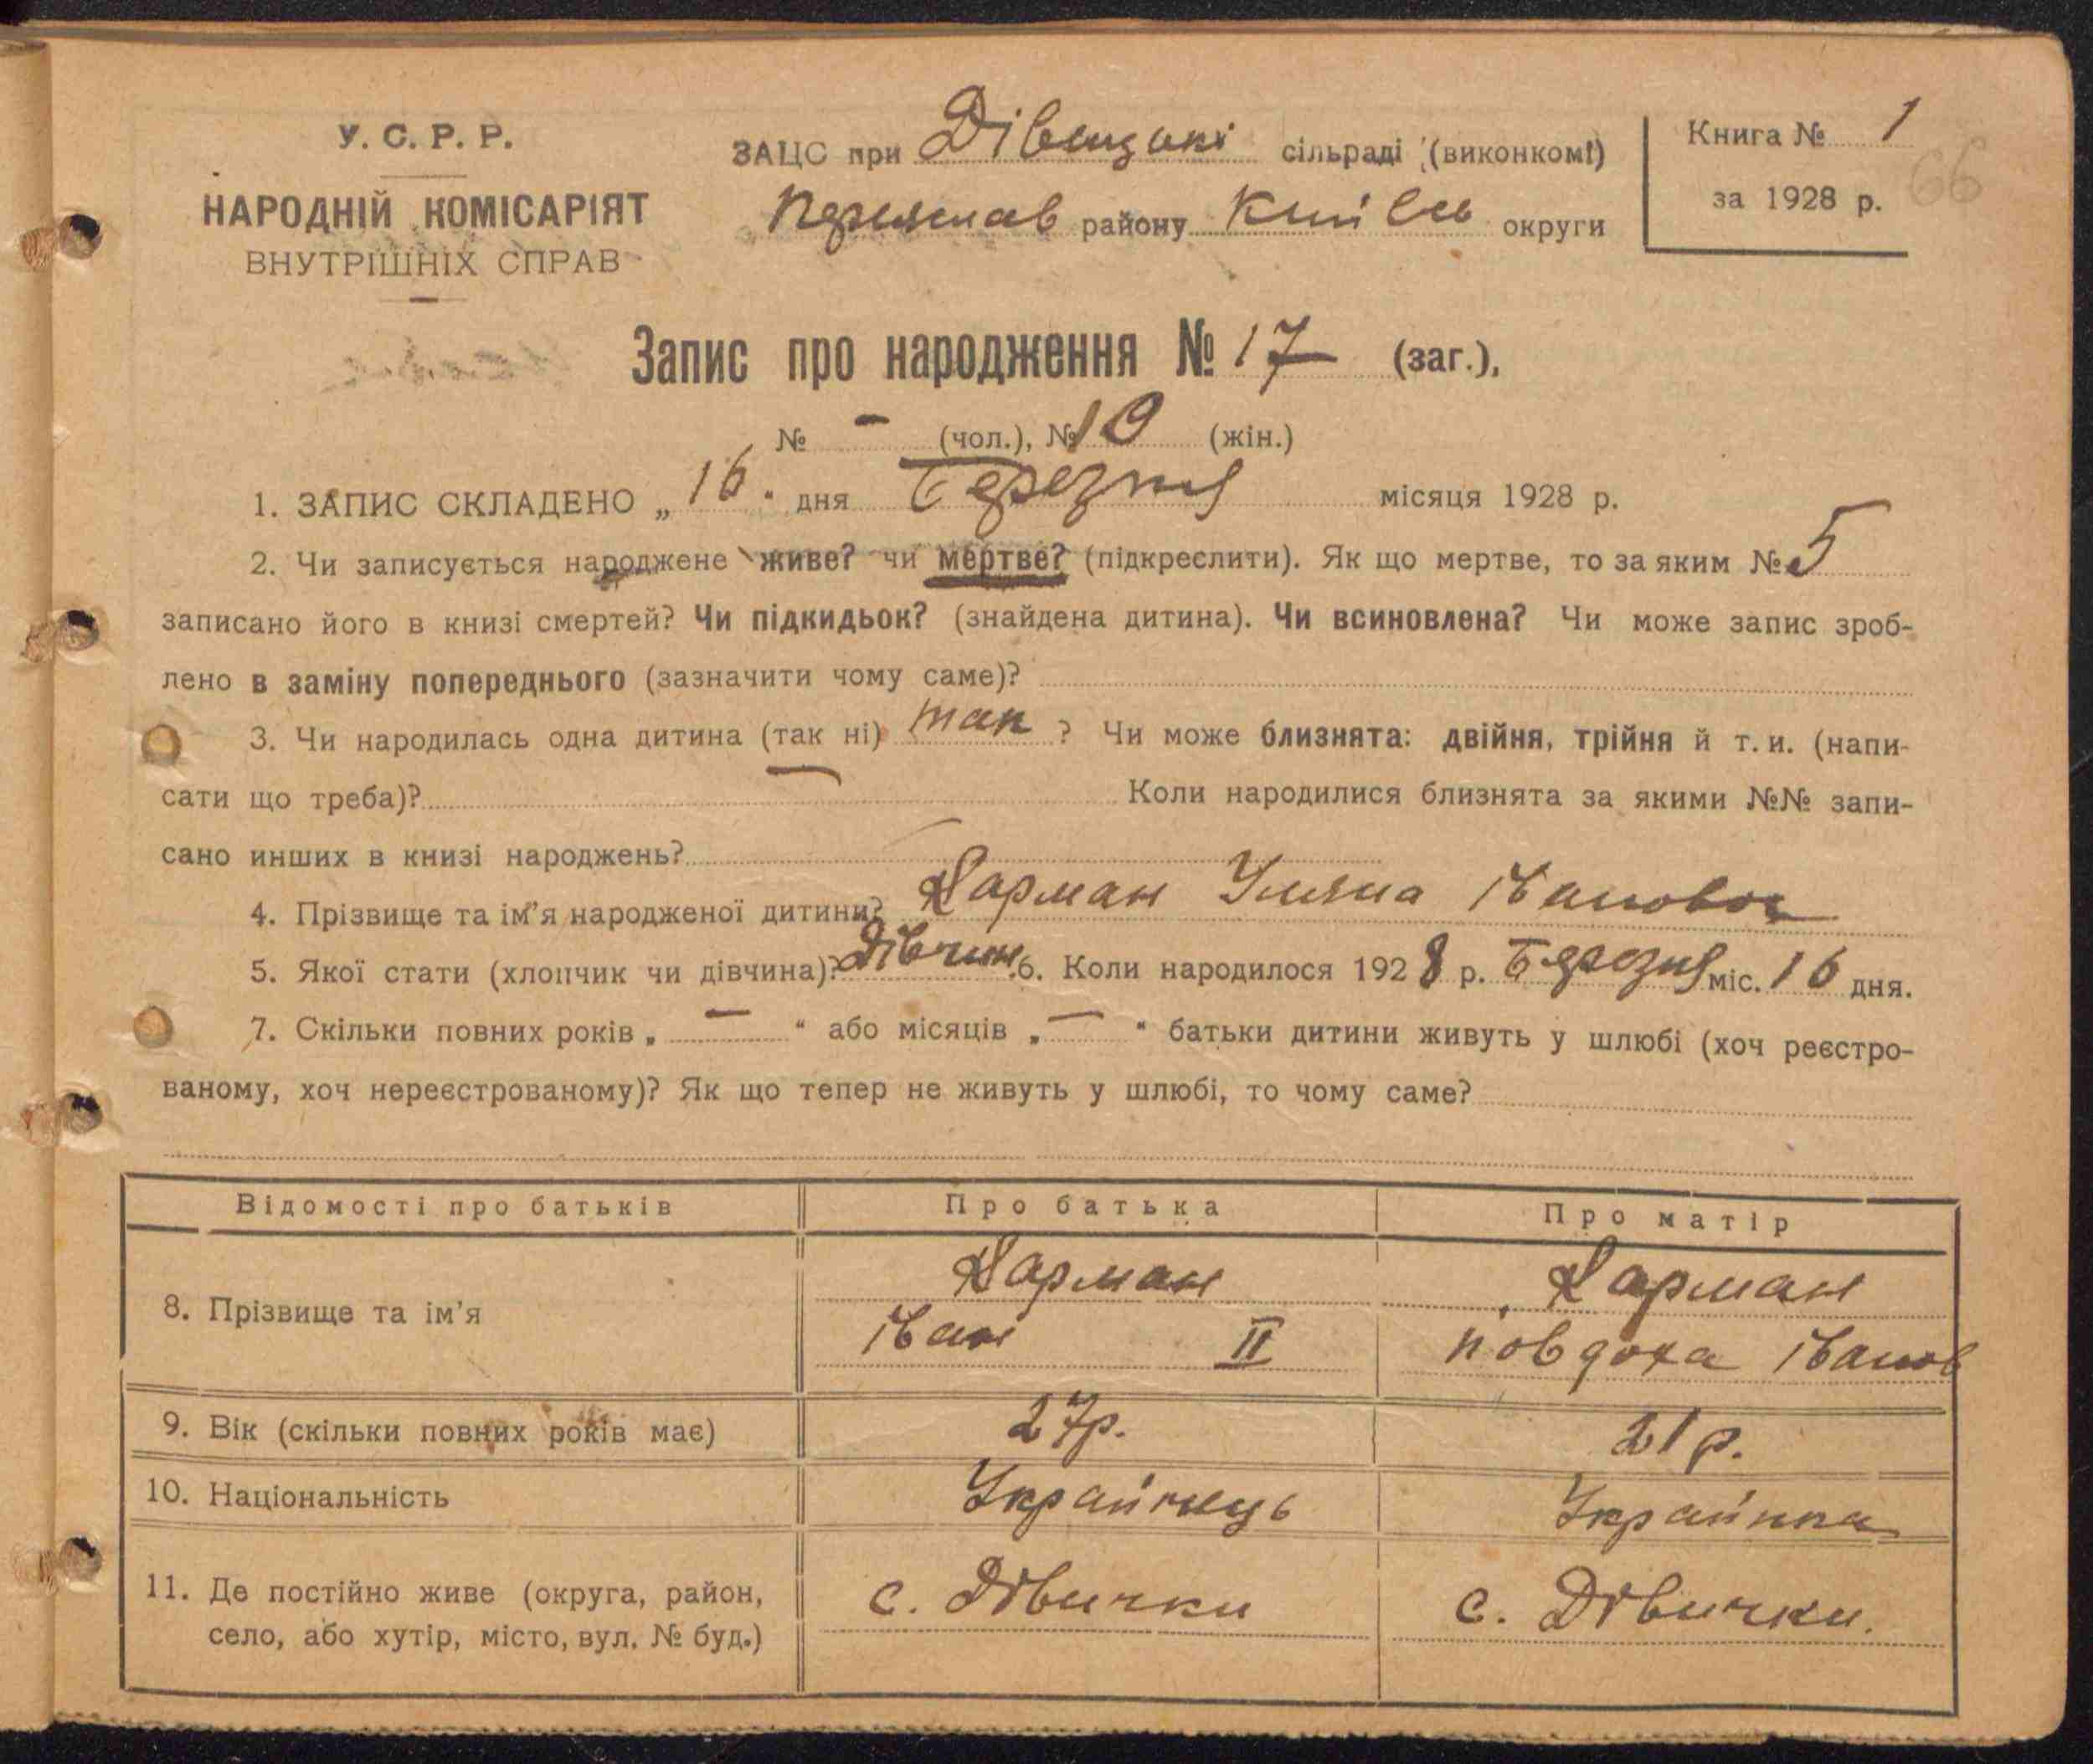 У. С. Р. Р.
НАРОДНІЙ КОМІСАРІЯТ
ВНУТРІШНІХ СПРАВ
ЗАЦС при Дівицькі сільраді (виконкомі)
Переяслав району Київсь округи
Книга № 1
за 1928 р.
66
Запис про народження № 17 (заг.),
№ – (чол.), № 10 (жін.)
1. ЗАПИС СКЛАДЕНО „16“ дня Березня місяця 1928 р.
2. Чи записується народжене живе? чи мертве? (підкреслити). Як що мертве, то за яким № 5
записано його в книзі смертей? Чи підкидьок? (знайдена дитина). Чи всиновлена? Чи може запис зроб-
лено в заміну попереднього (зазначити чому саме)?
3. Чи народилась одна дитина (так ні) так? Чи може близнята: двійня, трійня й т. и. (напи-
сати що треба)? — Коли народилися близнята за якими №№ запи-
сано инших в книзі народжень?
4. Прізвище та ім'я народженої дитини? Карман Уляна Івановна
5. Якої стати (хлопчик чи дівчина)? Дівчин. 6. Коли народилося 1928 р. Березня міс. 16 дня.
7. Скільки повних років „ — “ або місяців „ — “ батьки дитини живуть у шлюбі (хоч реєстро-
ваному, хоч нереєстрованому)? Як що тепер не живуть у шлюбі, то чому саме?
Відомості про батьків Про батька Про матір
8. Прізвище та ім'я Карман Карман
Іван ІІ Йовдоха Іванов
9. Вік (скільки повних років має) 27р. 21р.
10. Національність Українець Українка
11. Де постійно живе (округа, район, с. Дівички с. Дівички.
село, або хутір, місто, вул. № буд.)